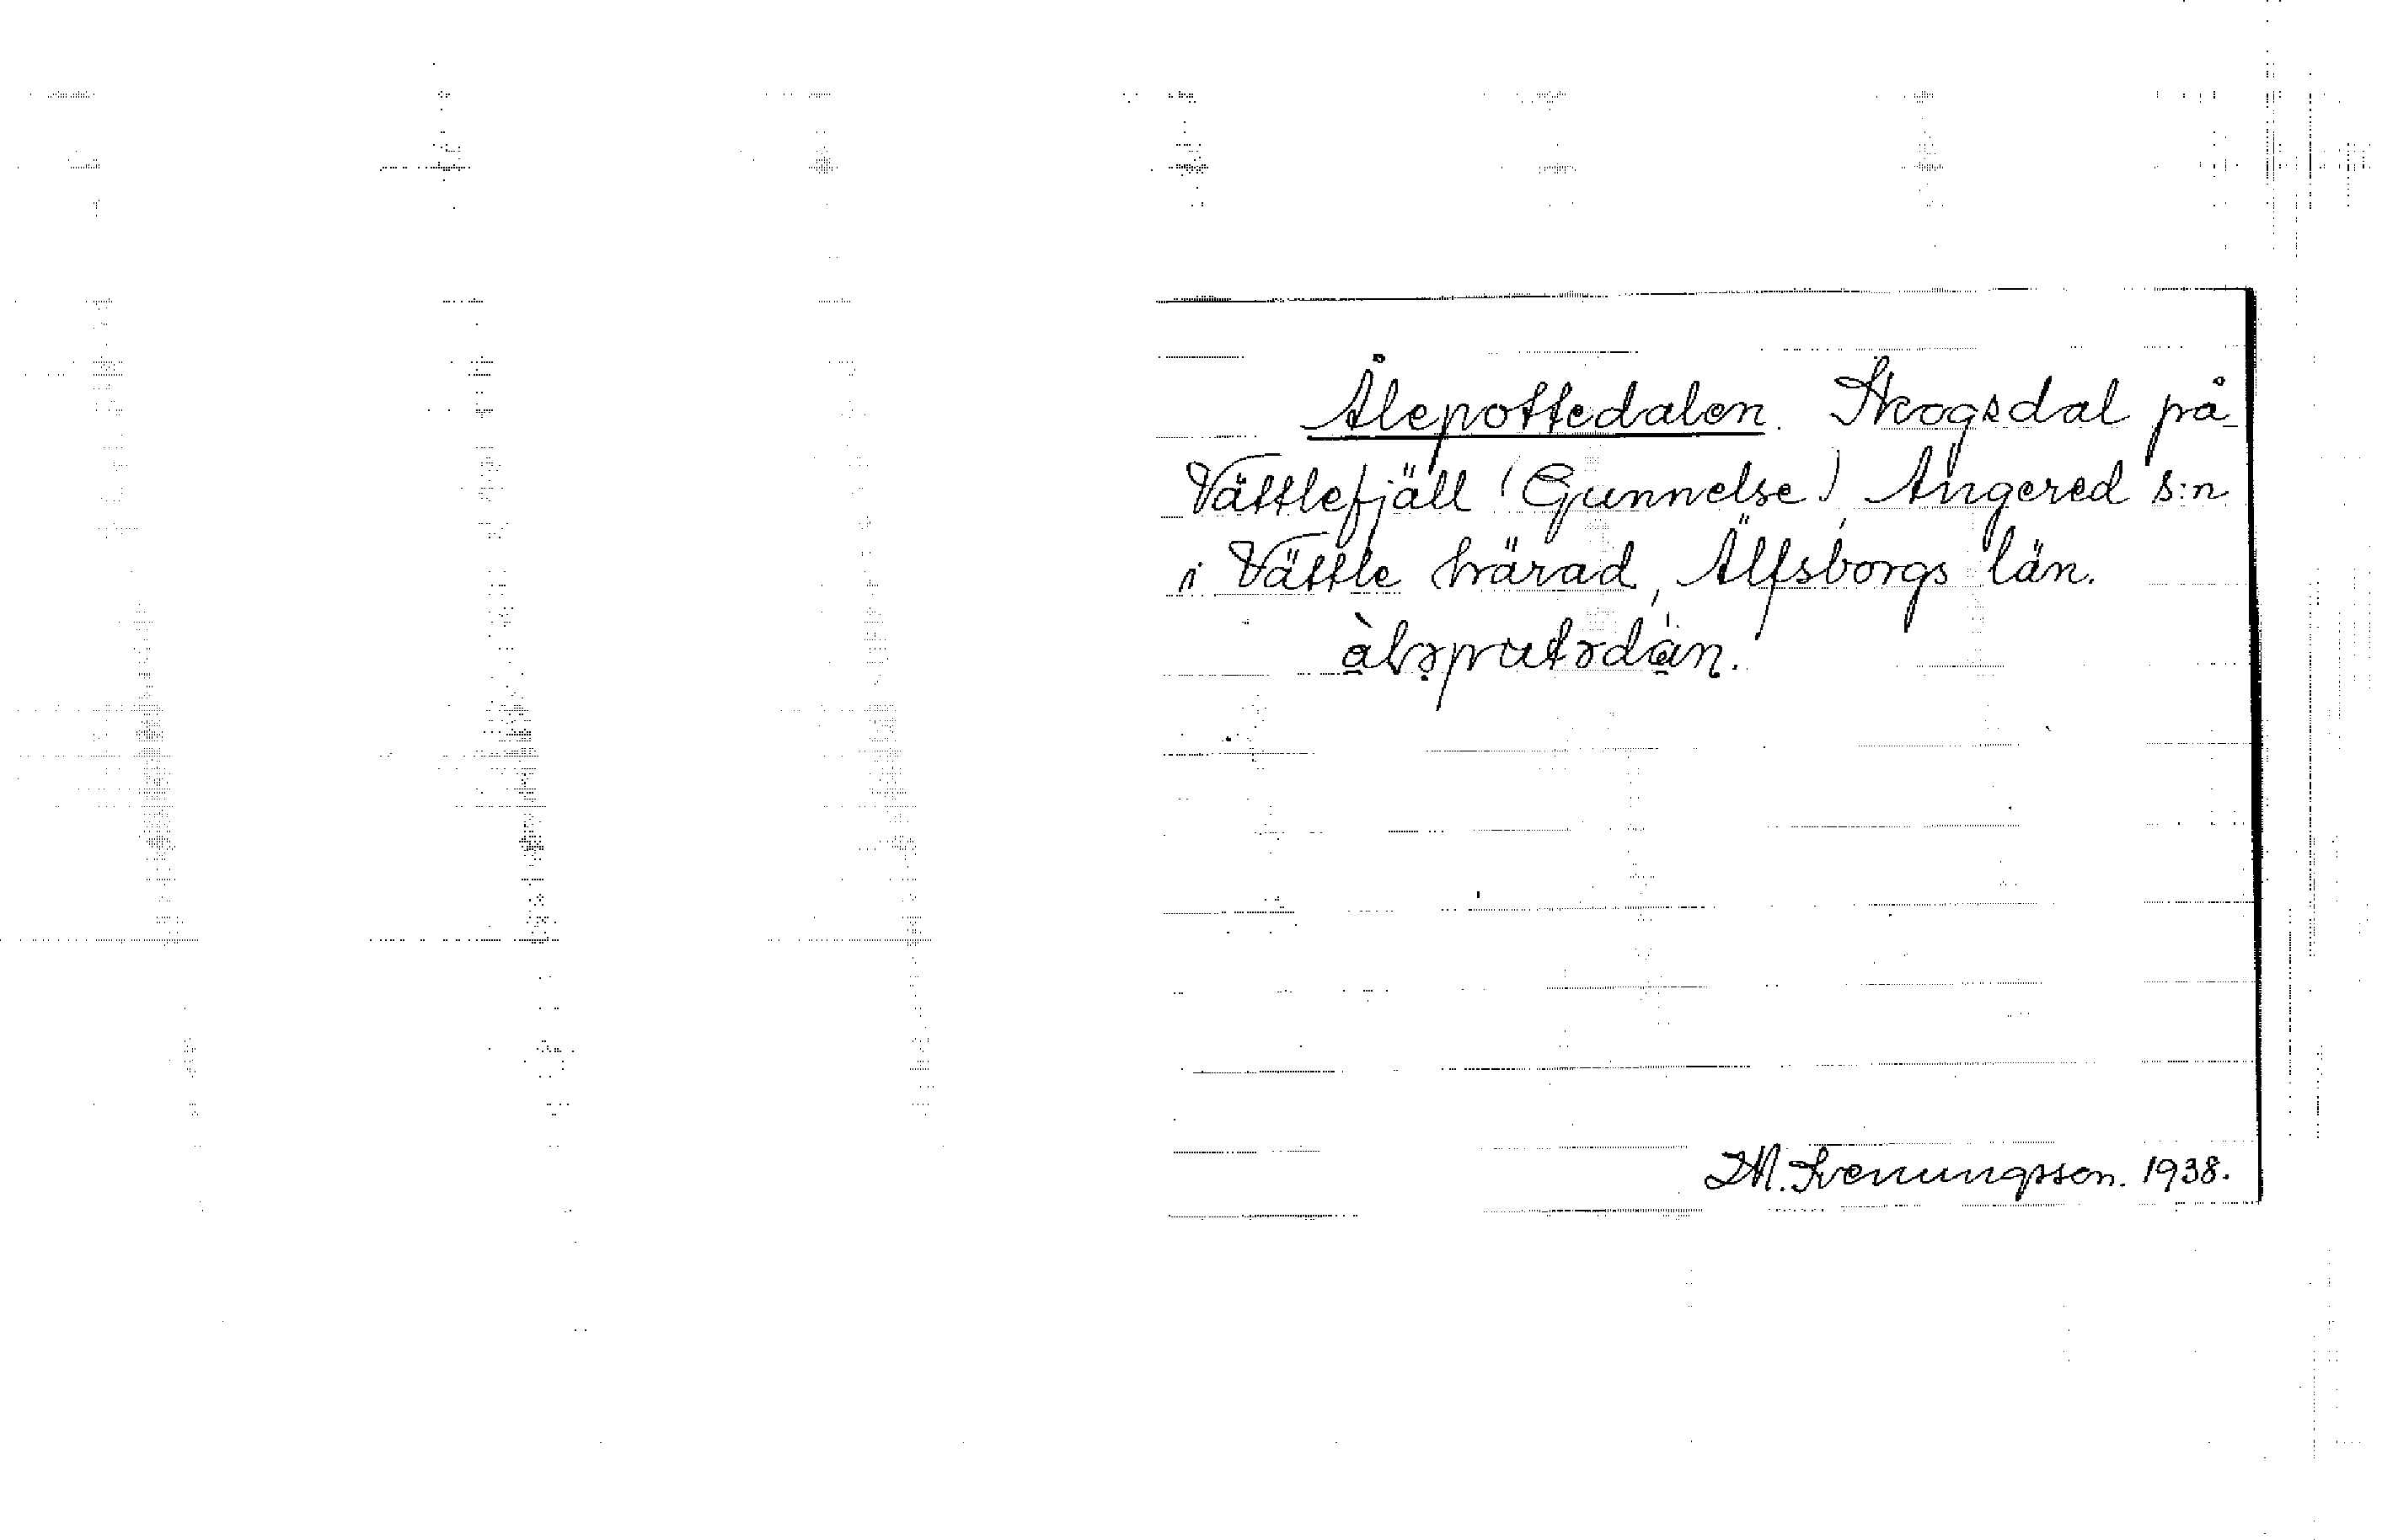 Ålepottedalen. Skogsdal på
Vättlefjäll (Gunnelse) Angered s:n
i Vättle härad, Älfsborgs län.
àləputədán.
I.M. Svenungsson. 1938.